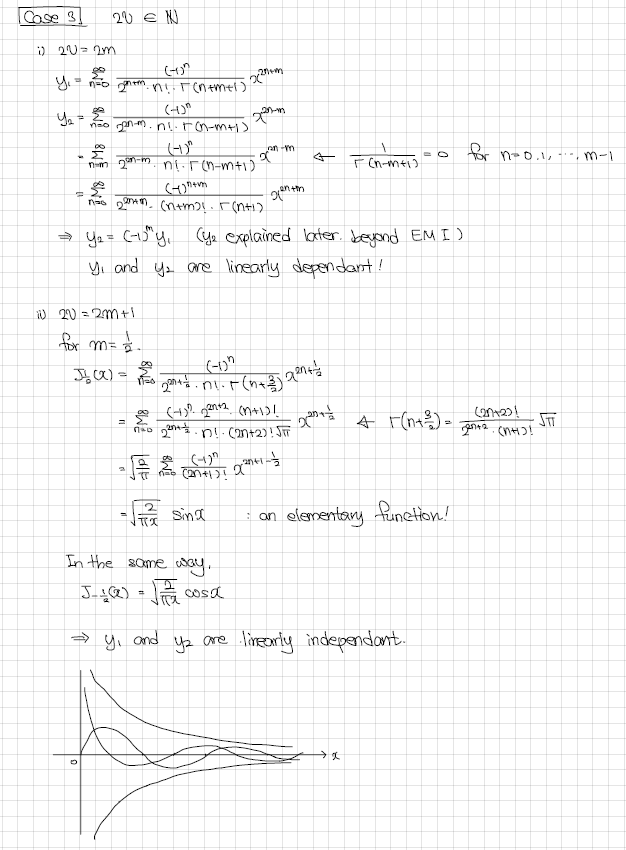 Case 3. 2ν ∈ ℕ
i) 2ν = 2m
y₁ = ∑_{n=0}^{∞} (-1)ⁿ / (2^{2n+m} · n! · Γ(n+m+1)) x^{2n+m}
y₂ = ∑_{n=0}^{∞} (-1)ⁿ / (2^{2n-m} · n! · Γ(n-m+1)) x^{2n-m}
= ∑_{n=m}^{∞} (-1)ⁿ / (2^{2n-m} · n! · Γ(n-m+1)) x^{2n-m} ← 1/Γ(n-m+1) = 0 for n=0.1, ⋯, m-1
= ∑_{n=0}^{∞} (-1)^{n+m} / (2^{2n+m} · (n+m)! · Γ(n+1)) x^{2n+m}
⇒ y₂ = (-1)^m y₁ (y₂ explained later. beyond EM I)
y₁ and y₂ are linearly dependant!
ii) 2ν = 2m+1
for m = 1/2.
J_{1/2}(x) = ∑_{n=0}^{∞} (-1)ⁿ / (2^{2n+1/2} · n! · Γ(n+3/2)) x^{2n+1/2}
= ∑_{n=0}^{∞} (-1)ⁿ · 2^{2n+2} · (n+1)! / (2^{2n+1/2} · n! · (2n+2)! √π) x^{2n+1/2} ← Γ(n+3/2) = (2n+2)! / (2^{2n+2} · (n+1)!) √π
= √(2/π) ∑_{n=0}^{∞} (-1)ⁿ / (2n+1)! x^{2n+1-1/2}
= √(2/πx) sinx : an elementary function!
In the same way,
J_{-1/2}(x) = √(2/πx) cosx
⇒ y₁ and y₂ are linearly independant.
x
0